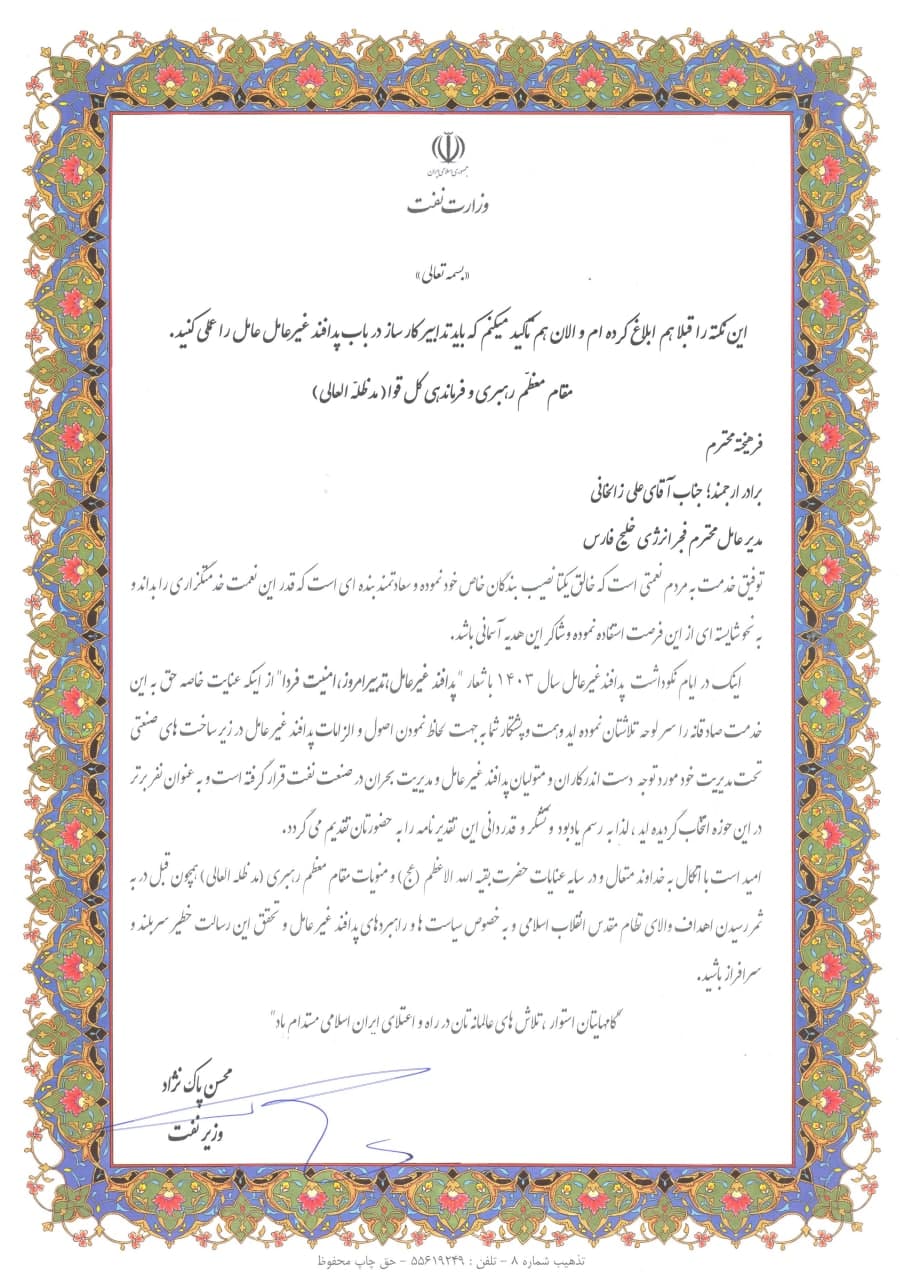 جمهوری اسلامی ایران
وزارت نفت
«بسمه تعالی»
این نکته را قبلا هم ابلاغ کرده ام و الان هم تأکید میکنم که باید تدابیر کارساز در باب پدافند غیرعامل عامل را عملی کنید.
مقام معظّم رهبری و فرماندهی کل قوا (مد ظلّه العالی)
فرهیخته محترم
برادر ارجمند؛ جناب آقای علی زالخانی
مدیر عامل محترم فجر انرژی خلیج فارس
توفیق خدمت به مردم نعمتی است که خالق یکتا نصیب بندگان خاص خود نموده و سعادتمند بنده ای است که قدر این نعمت خدمتگزاری را بداند و
به نحو شایسته ای از این فرصت استفاده نموده و شاکر این هدیه آسمانی باشد.
اینک در ایام نکوداشت پدافند غیرعامل سال ۱۴۰۳ با شعار "پدافند غیرعامل، تدبیر امروز، امنیت فردا" از اینکه عنایت خاصه حق به این
خدمت صادقانه را سر لوحه تلاشتان نموده اید و همت و پشتکار شما به جهت لحاظ نمودن اصول و الزامات پدافند غیر عامل در زیر ساخت های صنعتی
تحت مدیریت خود مورد توجه دست اندرکاران و متولیان پدافند غیر عامل و مدیریت بحران در صنعت نفت قرار گرفته است و به عنوان نفر برتر
در این حوزه انتخاب گردیده اید ، لذا به رسم یادبود و تشکر و قدردانی این تقدیر نامه را به حضورتان تقدیم می گردد.
امید است با اتکال به خداوند متعال و در سایه عنایات حضرت بقیه الله الاعظم (عج) و منویات مقام معظم رهبری (مد ظله العالی) همچون قبل در به
ثمر رسیدن اهداف والای نظام مقدس انقلاب اسلامی و به خصوص سیاست ها و راهبردهای پدافند غیر عامل و تحقق این رسالت خطیر سربلند و
سرافراز باشید.
گامهایتان استوار ، تلاش های عالمانه تان در راه و اعتلای ایران اسلامی مستدام باد"
محسن پاک نژاد
وزیر نفت
تذهیب شماره ۸ - تلفن : ۵۵۶۱۹۲۴۹ - حق چاپ محفوظ